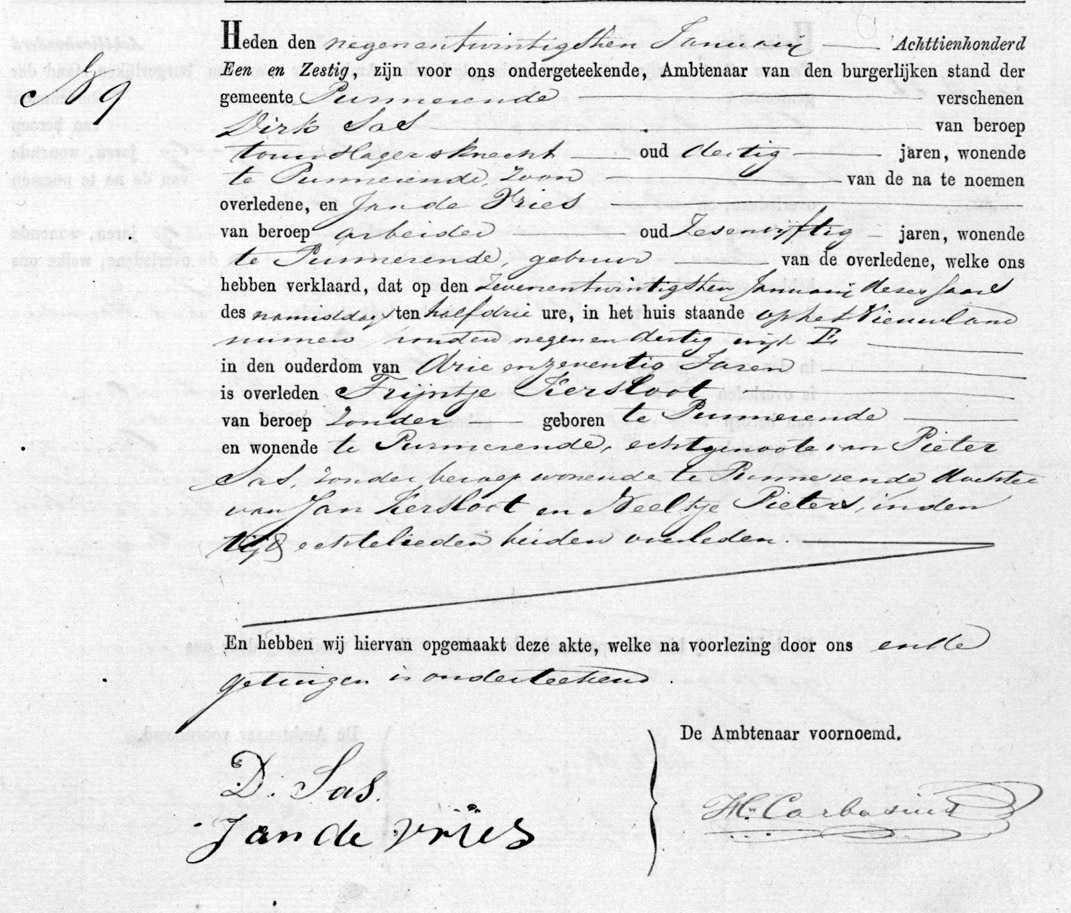 Heden den negenentwintigsten Januarij Achttienhonderd
Een en Zestig, zijn voor ons ondergeteekende, Ambtenaar van den burgerlijken stand der
9
gemeente Purmerende verschenen
Dirk Sas van beroep
touwslagersknecht oud dertig jaren, wonende
te Purmerende, zoon van de na te noemen
overledene, en Jan de Vries
van beroep arbeider oud Zesenvijftig jaren, wonende
te Purmerende, gebuur van de overledene, welke ons
hebben verklaard, dat op den Zevenentwintigsten Januarij dezes Jaars
des namiddags ten half drie ure, in het huis staande op het Nieuwland
numero honderd negen en dertig wijk E
in den ouderdom van drie en zeventig Jaren
is overleden Trijntje Kersloot
van beroep Zonder geboren te Purmerende
en wonende te Purmerende, echtgenoote van Pieter
Sas, zonder beroep wonende te Purmerende dochter
van Jan Kersloot en Neeltje Pieters, in den
tijd echtelieden beiden overleden.
En hebben wij hiervan opgemaakt deze akte, welke na voorlezing door ons en de
getuigen is onderteekend.
De Ambtenaar voornoemd.
D. Sas.
Jan de Vries
H. Carbasius